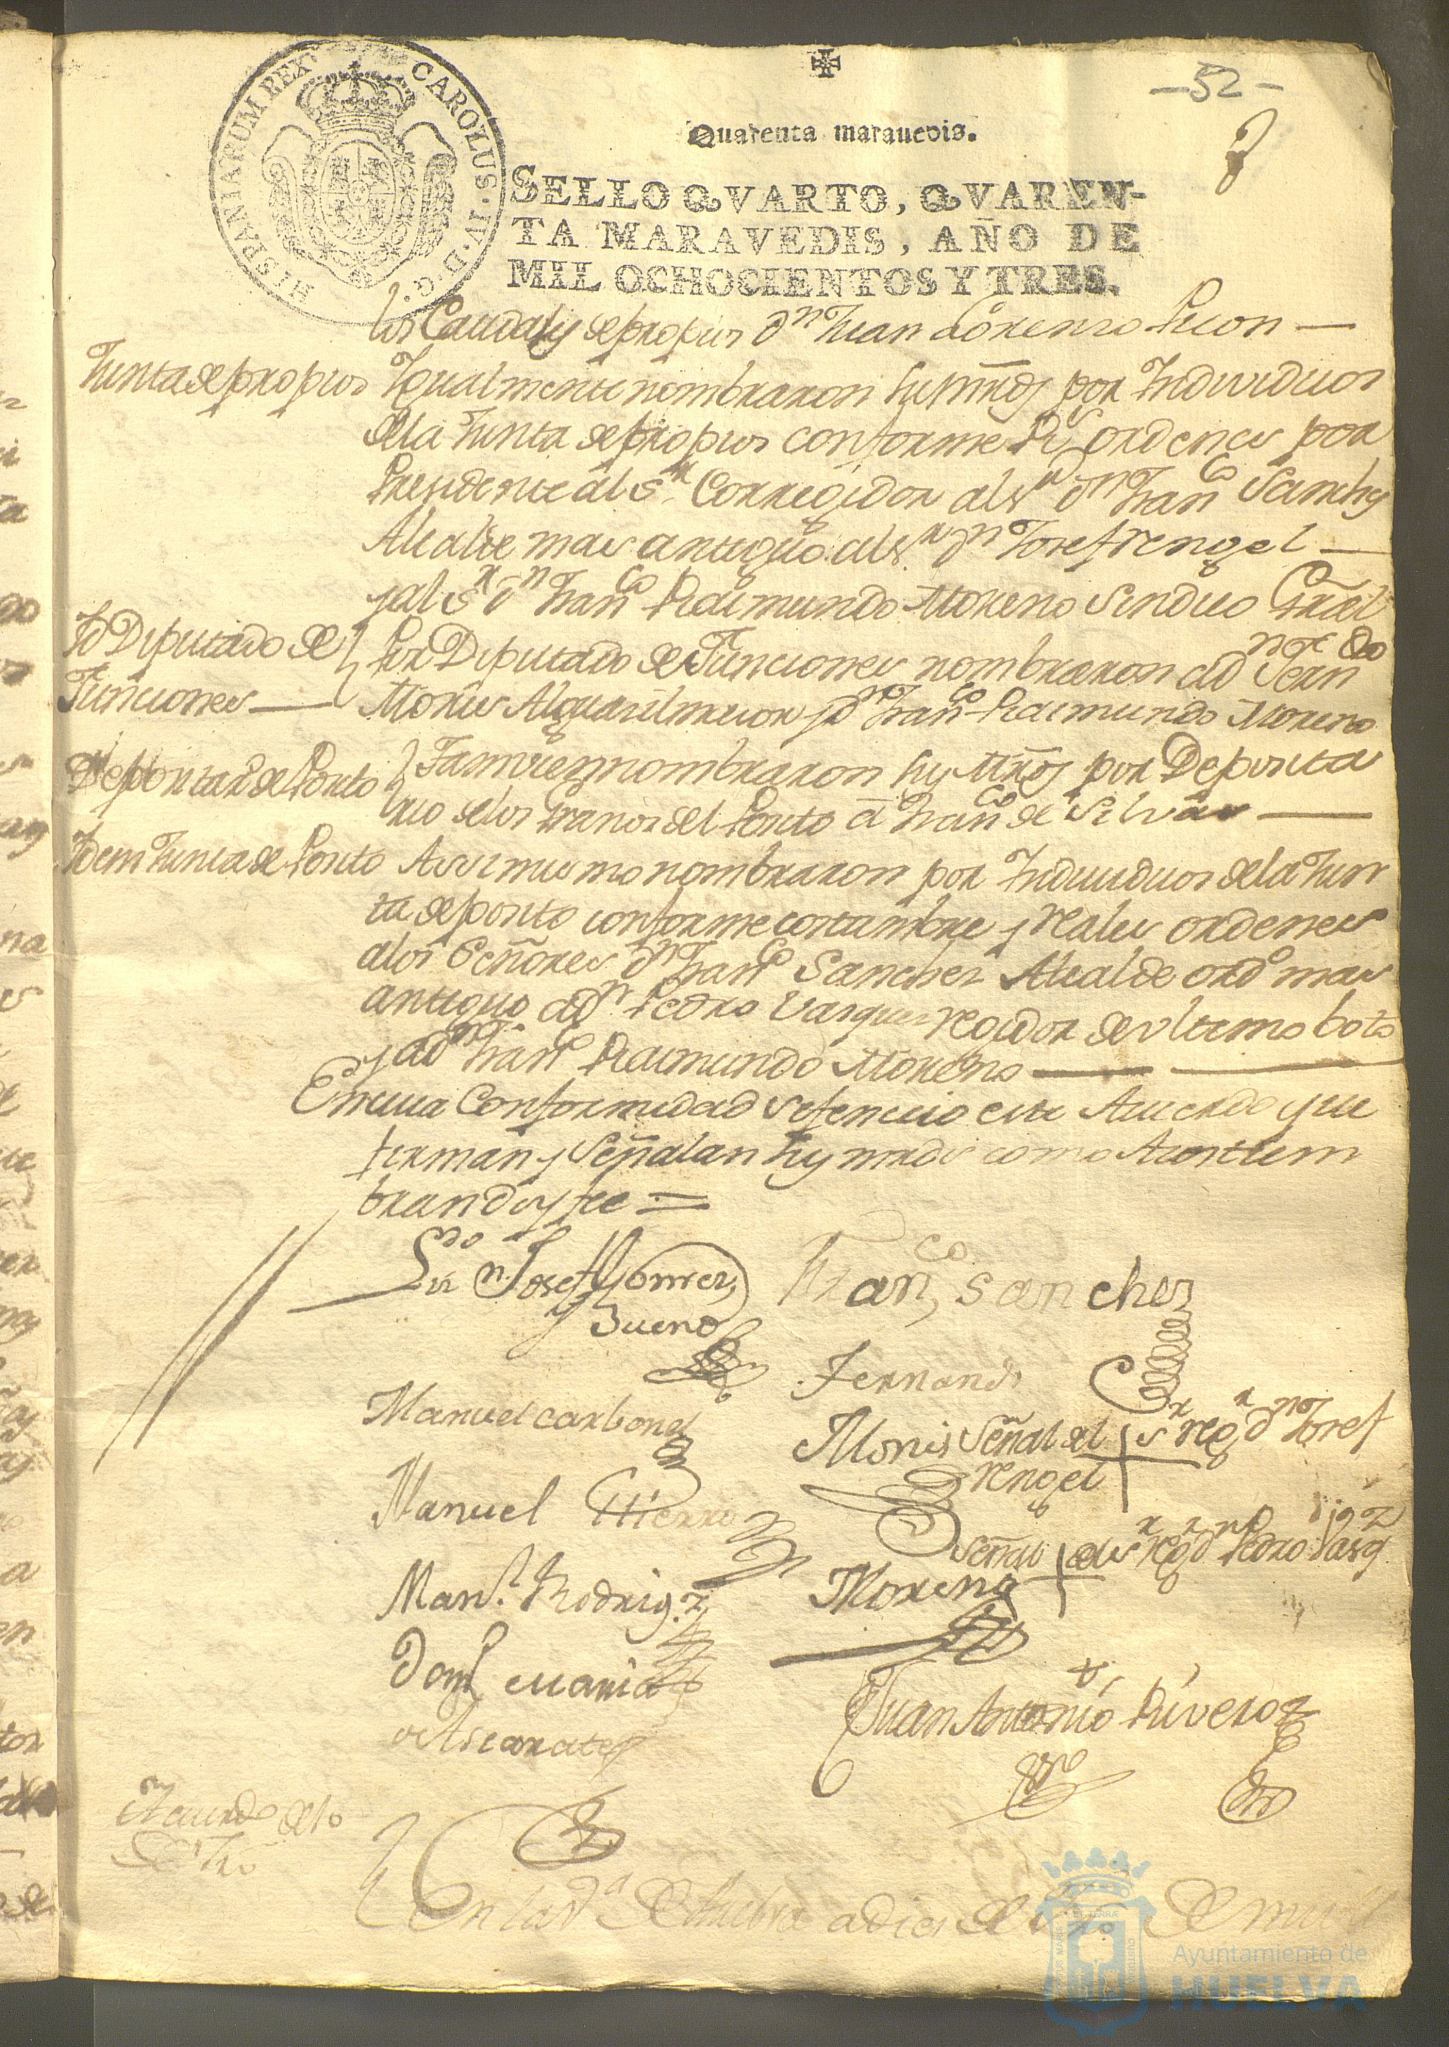 -52-
Quarenta marauedis.
HISPANIARUM REX CAROLUS·IV·D·G·
SELLO QVARTO, QVAREN-
TA MARAVEDIS, AÑO DE
MIL OCHOCIENTOS Y TRES.
los Caudales de propios a Dn Juan Lorenzo
Junta de propios
Igualmente nombraron sus mrds por Individuos
de la Junta de propios conforme Rs ordenes por
Presidente al Sr Corregidor al Sr Dn Franco Sanchez
Alcalde mas antiguo al Sr Dn Josef rengel
y al Sr Dn Franco Raimundo Moreno Sindico Gral
Yd Diputado de
Funciones
Por Diputado de Funciones nombraron a Dn Ferndo
Monis Alguasil maior y Dn Franco Raimundo Moreno
Depositario de Posito
Tamvien nombraron sus Mrds por Deposita
rio de los Granos del Posito a Franco de Silva
Ydem Junta de Posito
Assi mismo nombraron por Individuos de la Jun
ta de posito conforme costumbre y reales ordenes
a los Señores Dn Franco Sanchez Alcalde ordo mas
antiguo a Dn Pedro Vasques regidor de vltimo boto
y a Dn Franco Raimundo Moreno
En cuia Conformidad se fenecio este Acuerdo que
firman y Señalan sus mrds como Acostum
bran doy fee =
Ldo Dn Josef Gomez
Bueno
Franco Sanchez
Manuel carbonel
Fernando
Monis
Señal del + Sr regr Dn Josef
rengel
Manuel Hierro
Señal + del Sr regr Dn Pedro Vasqz
Manl Rodrigz
Moreno
Doml Maria
Ascarate
Juan Antonio Rivero
Acuerdo de
En la va de Huelva a dies de
Ayuntamiento de
HUELVA